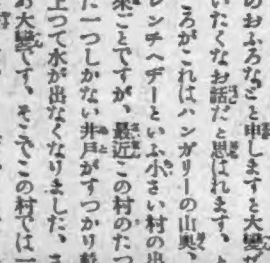 のおふろなどと申しますと大變
いたくなお話だと思はれます、
ろがこれはハンガリーの山奥、
レンチヘギーといふ小さい村の出
來ごとですが、最近この村のたつ
た一つしかない井戸がすつかり
上つて水が出なくなりました、
大變です、そこでこの村では一